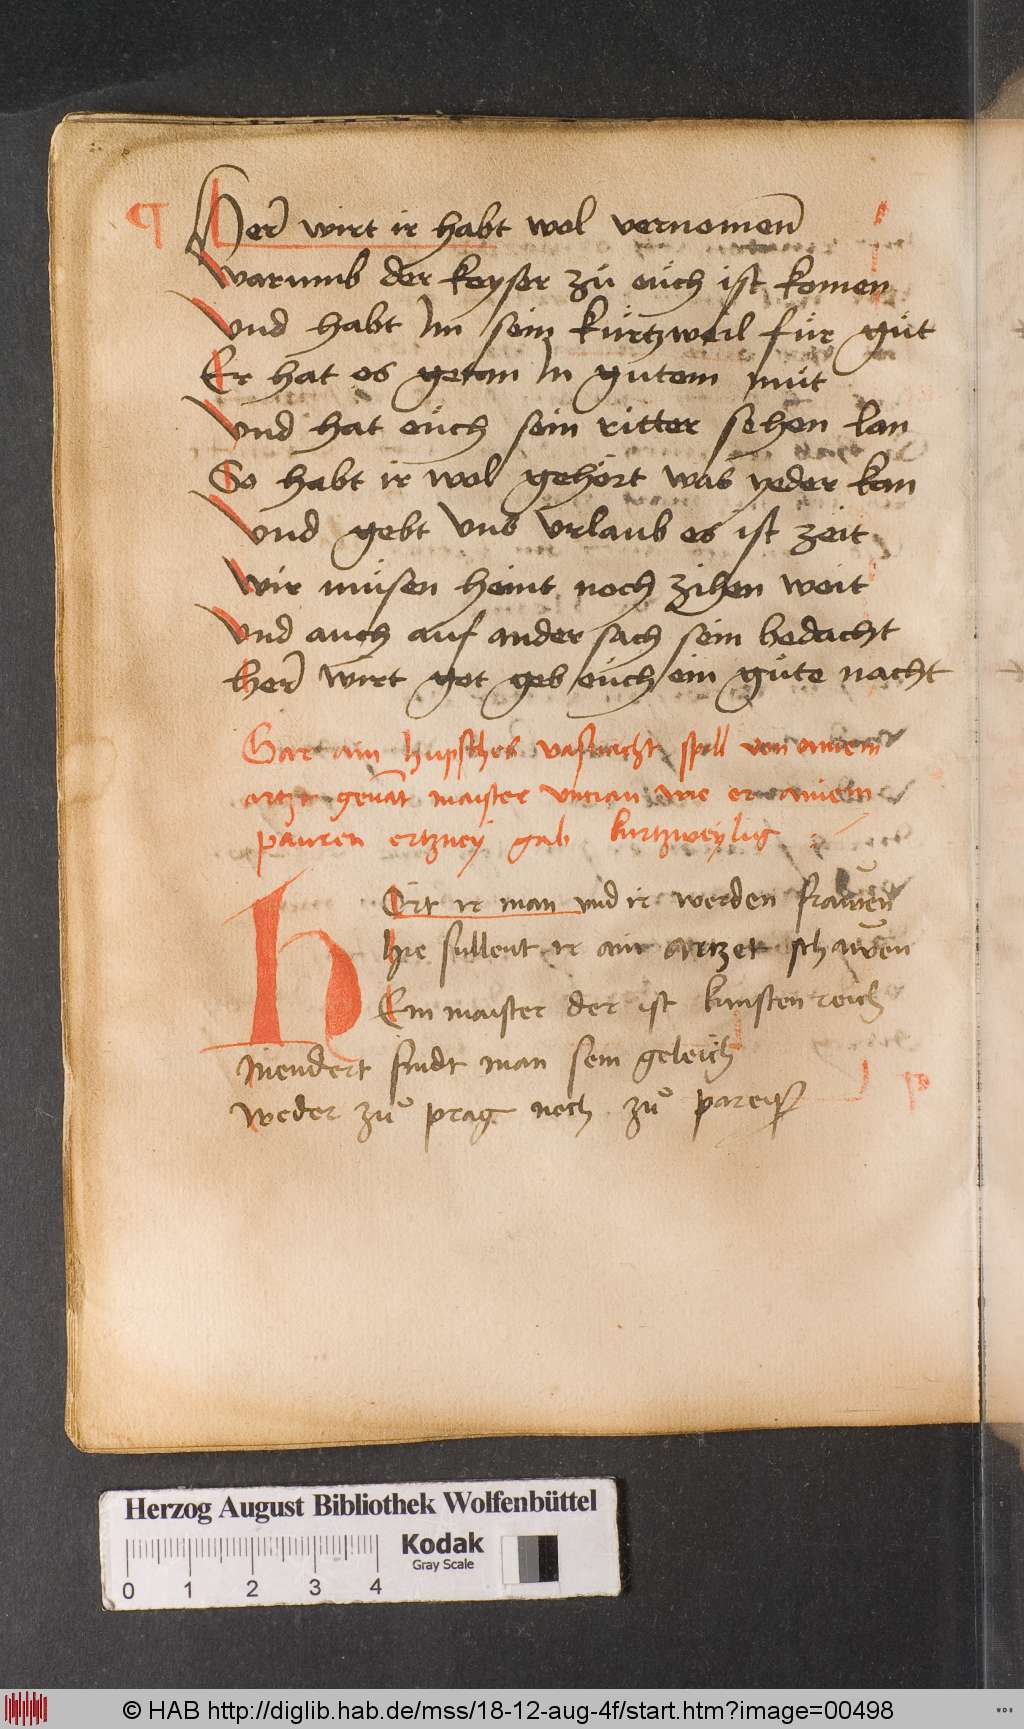 ¶ Her̄ wirt ir habt wol vernomen̄
warumb der keyser zů eu̍ch ist komen
Vnd habt Im sein ku̍rtzweil fu̍r gu̍t
Er hat es getan In gutem mu̍t
Vnd hat eu̍ch sein ritter sehen lan
So habt ir wol geho̍rt was yeder kan
Vnd gebt vns vrlaub es ist zeit
wir mu̍sen heint noch zihen weit
Vnd auch auf ander sach sein bedacht
her̄ wirt got geb eu̍ch ein gu̍te nacht
Gar ain hupsches vasnacht spill von ainem
artzt genāt maister vncian wie er ainem
pauren ertzney gab kurtzweylig
HOrt ir man vnd ir werden frawen̄
hie sullent ir ain artzet schawen̄
Ein maister der ist kunsten reich
Niendert findt man sein geleich
weder zů prag noch zů pareiß
Herzog August Bibliothek Wolfenbüttel
Kodak
Gray Scale
0 1 2 3 4
© HAB http://diglib.hab.de/mss/18-12-aug-4f/start.htm?image=00498